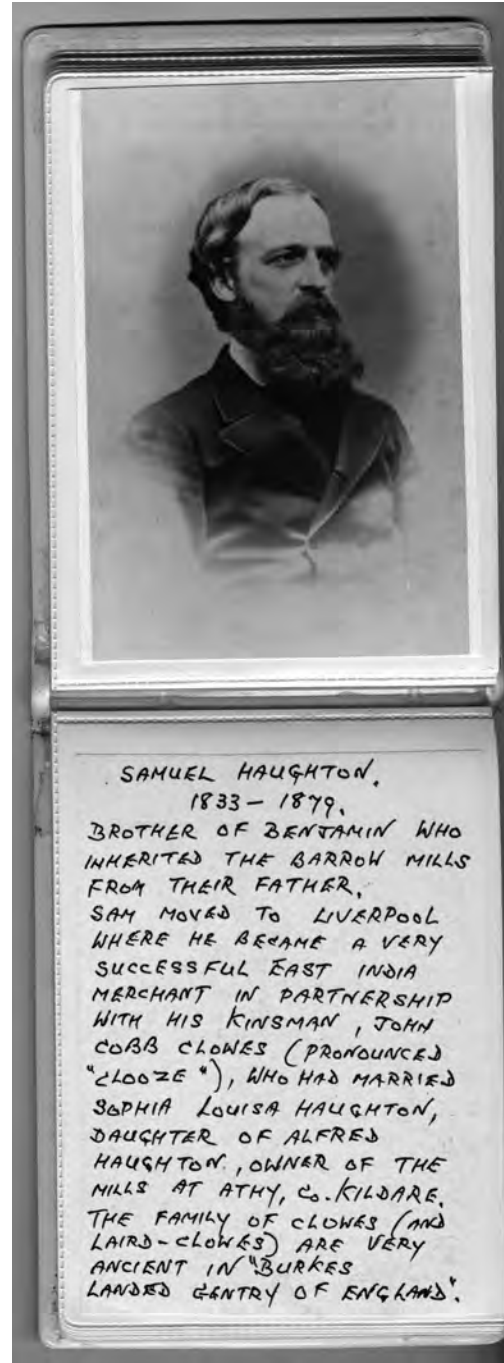 SAMUEL HAUGHTON.
1833 - 1879.
BROTHER OF BENJAMIN WHO
INHERITED THE BARROW MILLS
FROM THEIR FATHER.
SAM MOVED TO LIVERPOOL
WHERE HE BECAME A VERY
SUCCESSFUL EAST INDIA
MERCHANT IN PARTNERSHIP
WITH HIS KINSMAN, JOHN
COBB CLOWES (PRONOUNCED
"CLOOZE"), WHO HAD MARRIED
SOPHIA LOUISA HAUGHTON,
DAUGHTER OF ALFRED
HAUGHTON, OWNER OF THE
MILLS AT ATHY, CO. KILDARE.
THE FAMILY OF CLOWES (AND
LAIRD-CLOWES) ARE VERY
ANCIENT IN "BURKES
LANDED GENTRY OF ENGLAND".